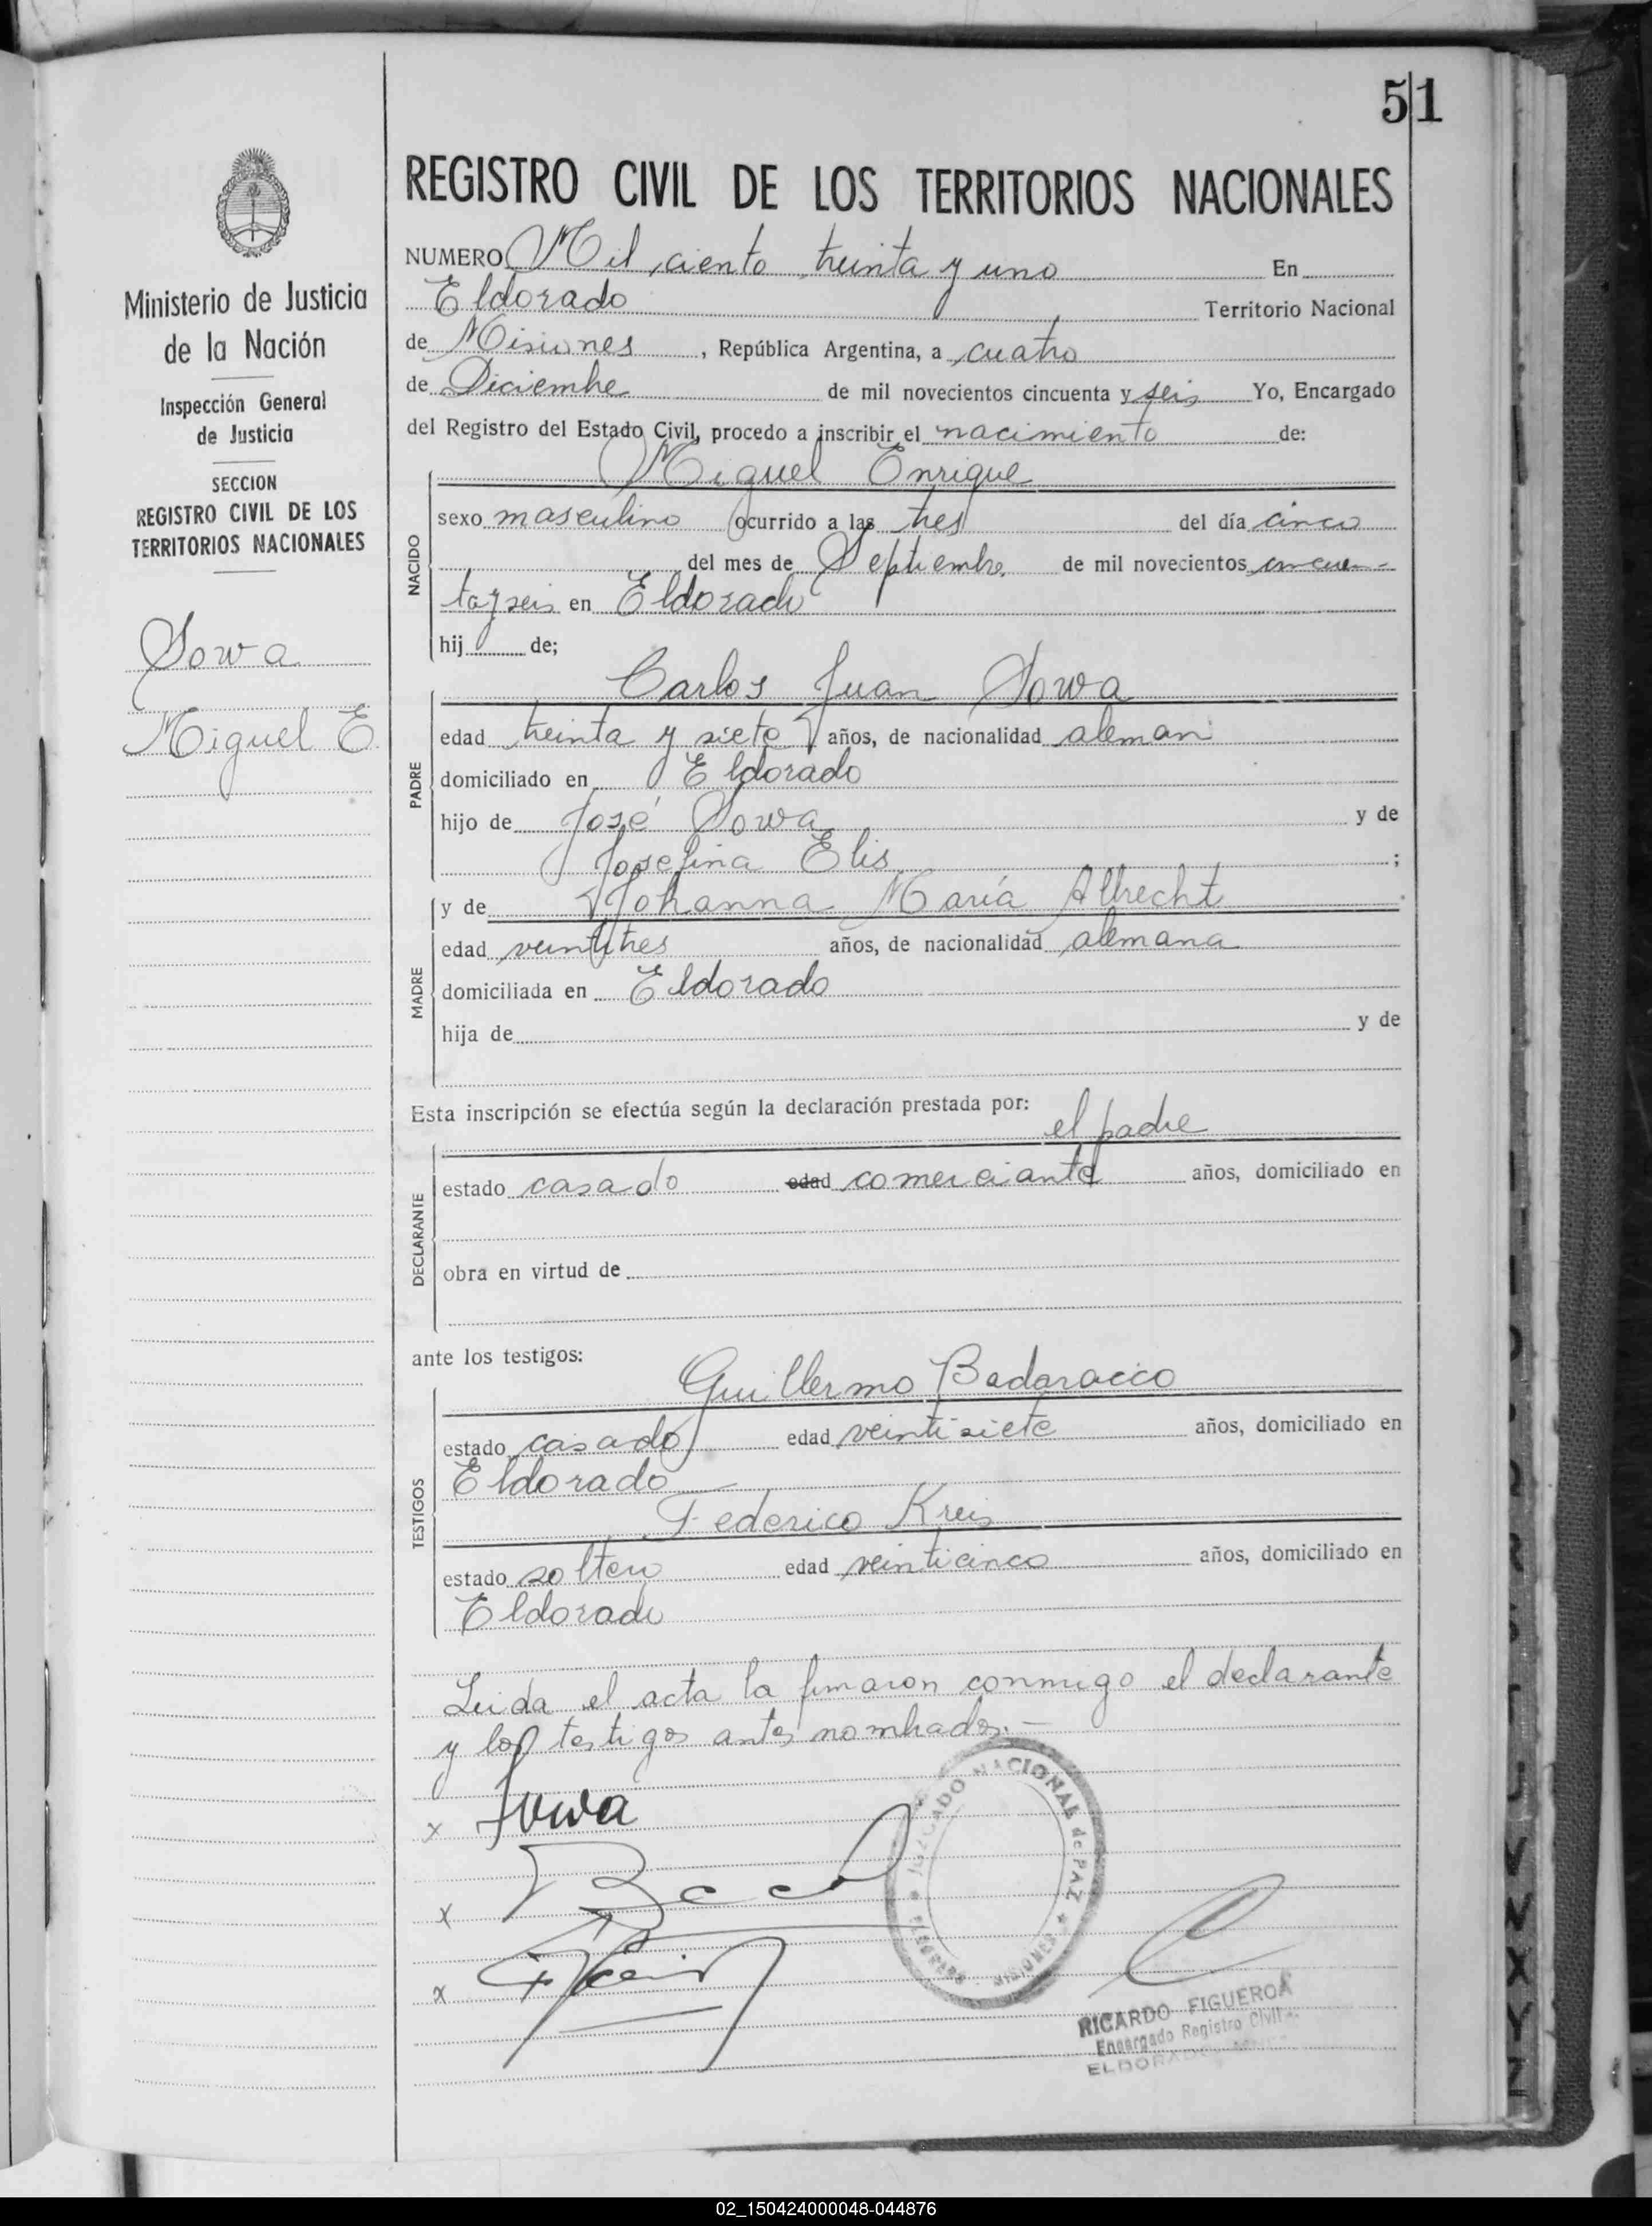 51
REGISTRO CIVIL DE LOS TERRITORIOS NACIONALES
Ministerio de Justicia
de la Nación
Inspección General
de Justicia
SECCION
REGISTRO CIVIL DE LOS
TERRITORIOS NACIONALES
Sowa
Miguel E.
NUMERO Mil ciento treinta y uno En
Eldorado Territorio Nacional
de Misiones, República Argentina, a cuatro
de Diciembre de mil novecientos cincuenta y seis Yo, Encargado
del Registro del Estado Civil, procedo a inscribir el nacimiento de:
Miguel Enrique
NACIDO
sexo masculino ocurrido a las tres del día cinco
del mes de Septiembre de mil novecientos cincuen-
ta y seis en Eldorado
hijo de;
Carlos Juan Sowa
PADRE
edad treinta y siete años, de nacionalidad aleman
domiciliado en Eldorado
hijo de José Sowa y de
Josefina Elis;
y de Johanna María Albrecht
MADRE
edad veintitres años, de nacionalidad alemana
domiciliada en Eldorado
hija de y de
Esta inscripción se efectúa según la declaración prestada por:
el padre
DECLARANTE
estado casado edad comerciante años, domiciliado en
obra en virtud de
ante los testigos:
Guillermo Badaracco
TESTIGOS
estado casado edad veintisiete años, domiciliado en
Eldorado
Federico Kreis
estado soltero edad veinticinco años, domiciliado en
Eldorado
Leida el acta la firmaron conmigo el declarante
y los testigos antes nombrados.-
x Sowa
x
x
JUZGADO NACIONAL de PAZ
ELDORADO - MISIONES
RICARDO FIGUEROA
Encargado Registro Civil
ELDORADO
02_150424000048-044876